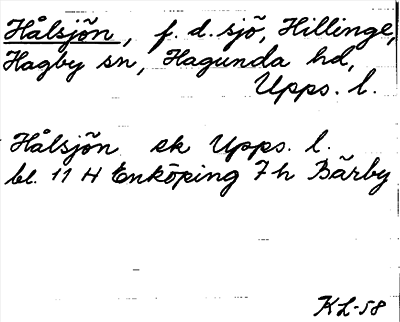 Hålsjön, f. d. sjö, Hillinge,
Hagby sn, Hagunda hd,
Upps. l.
Hålsjön ek Upps. l.
bl. 11 H Enköping 7 h Bärby
KL-58